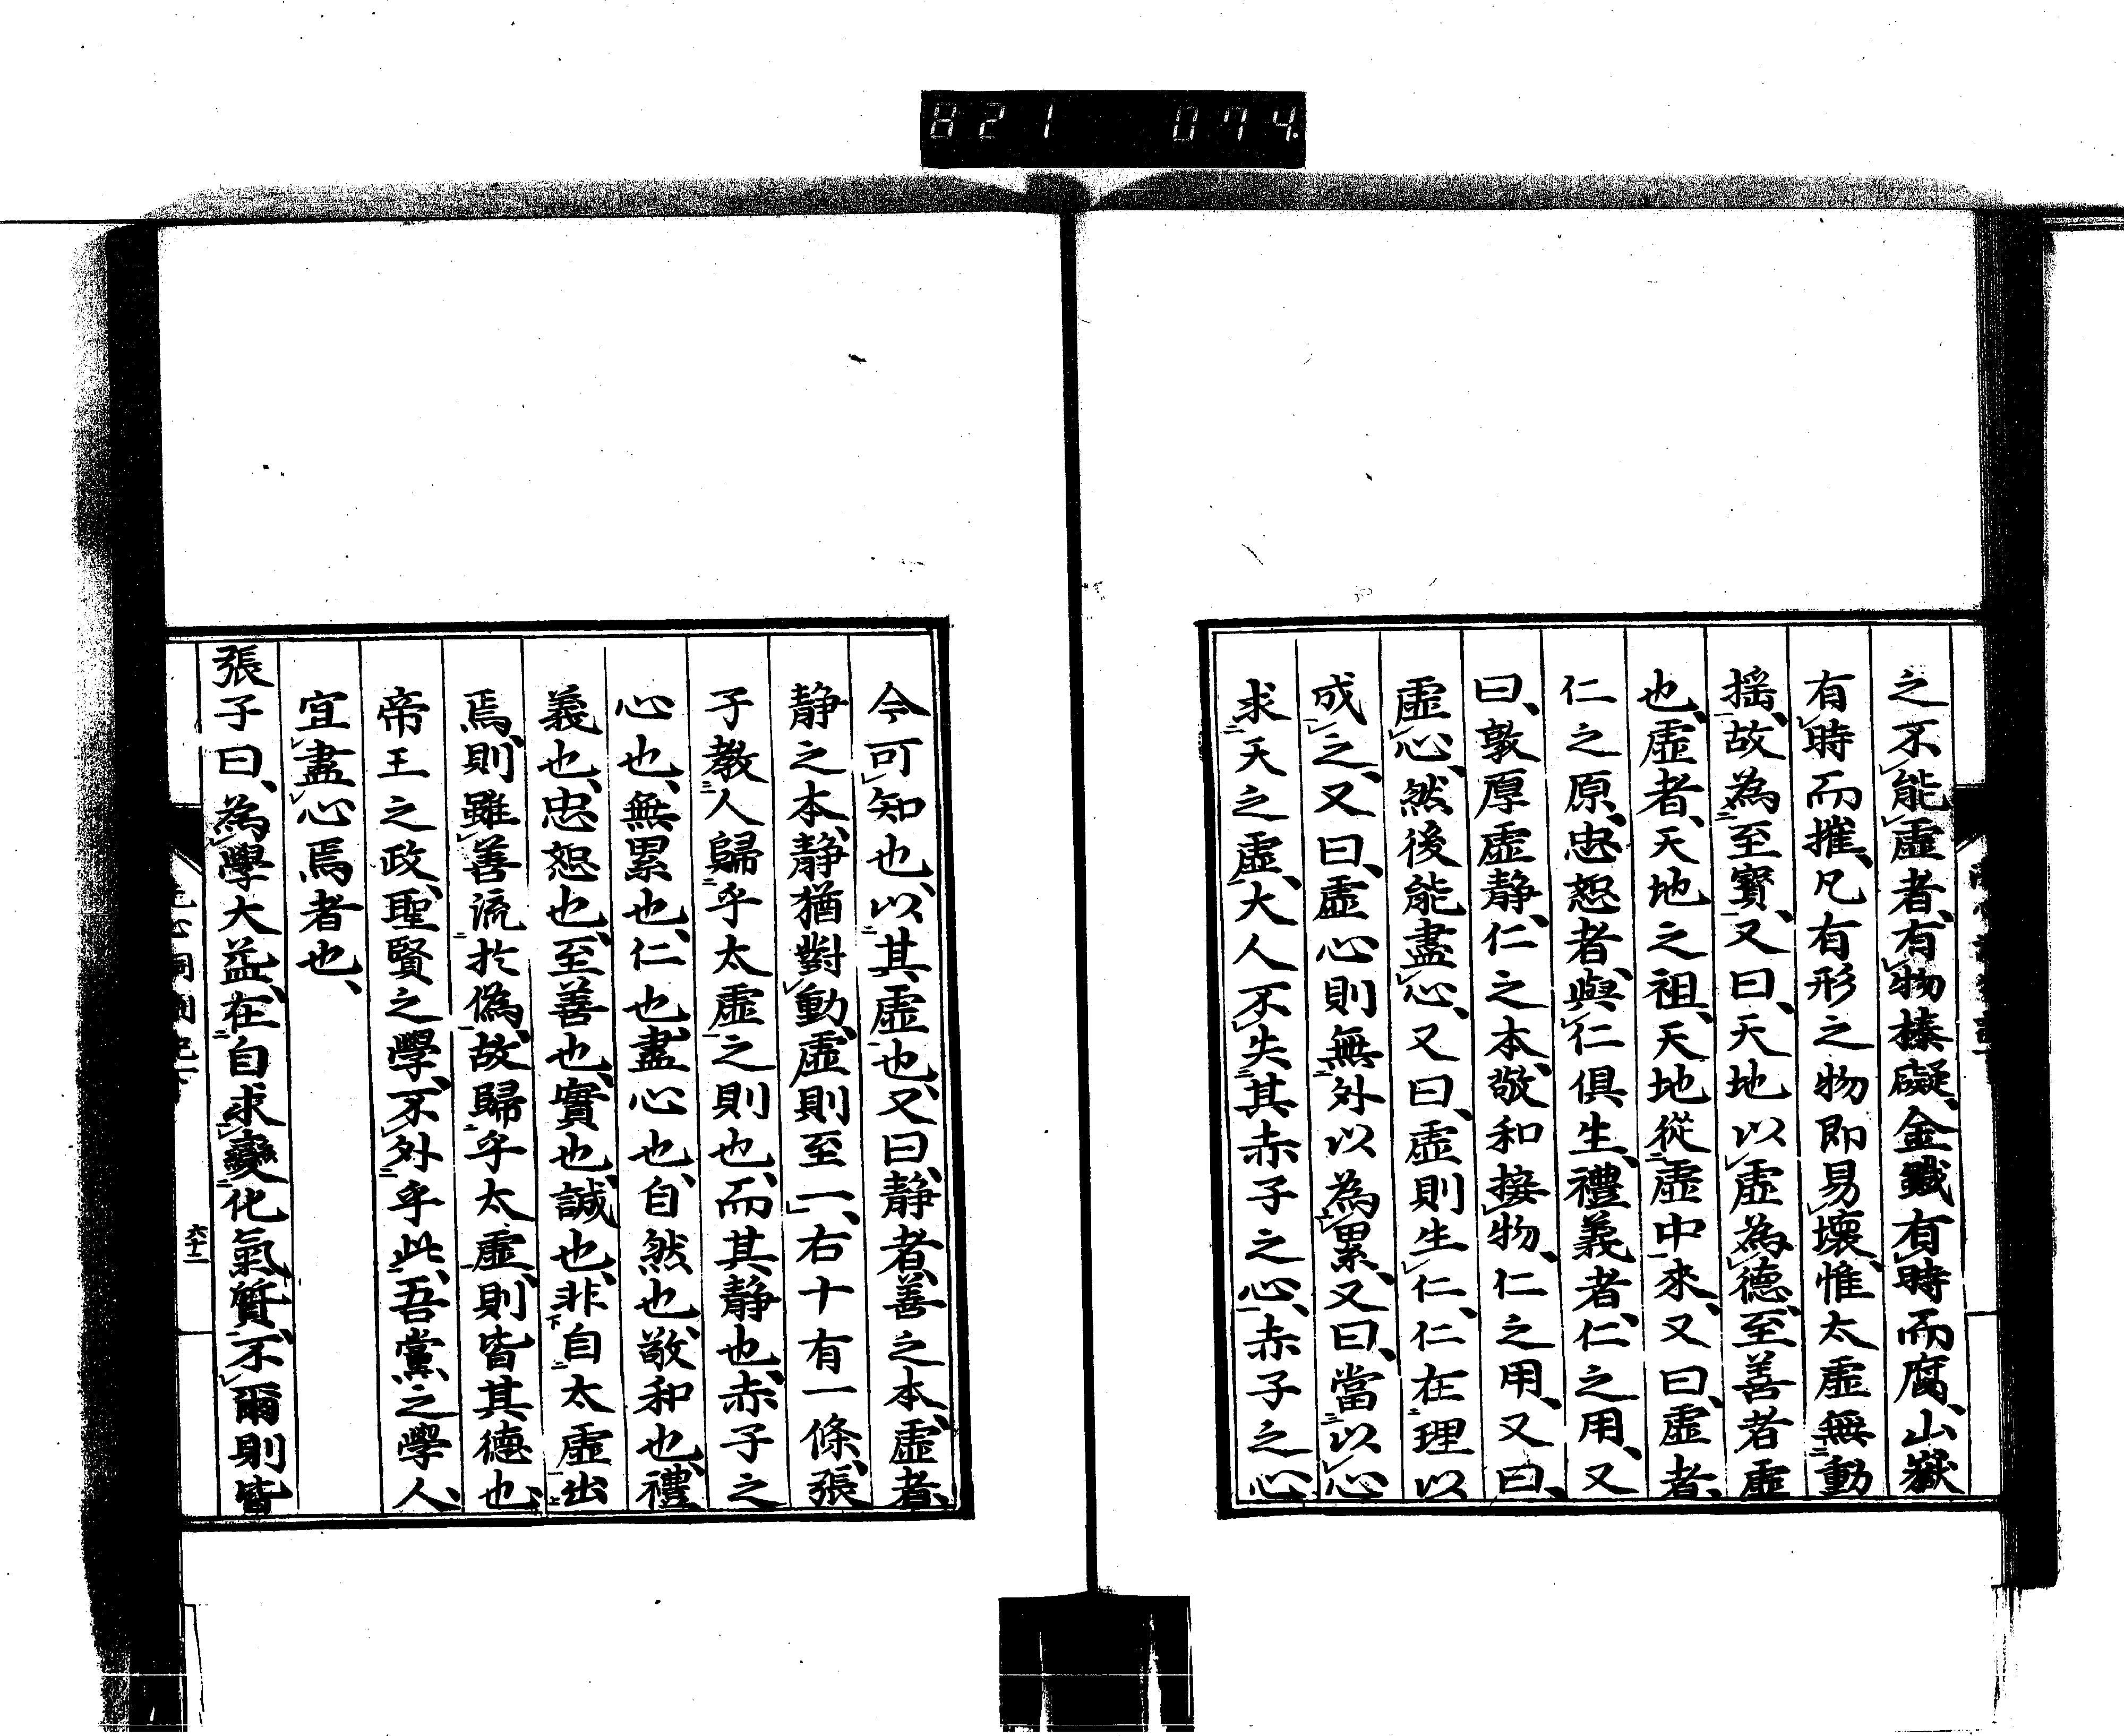 821 074.
之不能虛者、有物榛礙、金鐵有時而腐、山嶽
有時而摧、凡有形之物即易壞、惟太虛無動
搖、故為至實、又曰、天地以虛為德、至善者虛
也、虛者、天地之祖、天地從虛中來、又曰、虛者、
仁之原、忠恕者、與仁俱生、禮義者、仁之用、又
曰、敦厚虛靜、仁之本、敬和接物、仁之用、又曰、
虛心、然後能盡心、又曰、虛則生仁、仁在理以
成之、又曰、虛心則無外以為累、又曰、當以心
求天之虛、大人不失其赤子之心、赤子之心
今可知也、以其虛也、又曰、靜者、善之本、虛者、
靜之本、靜猶對動、虛則至一、右十有一條、張
子教人歸乎太虛之則也、而其靜也、赤子之
心也、無累也、仁也、盡心也、自然也、敬和也、禮
義也、忠恕也、至善也、實也、誠也、非自太虛出
焉、則雖善流於偽、故歸乎太虛、則皆其德也、
帝王之政、聖賢之學、不外乎此、吾黨之學人、
宜盡心焉者也、
張子曰、為學大益、在自求變化氣質、不爾則皆
六十二